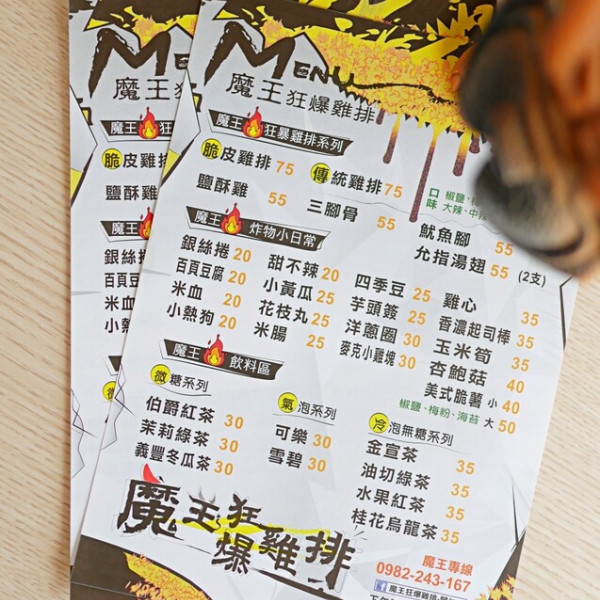 MENU
魔王狂爆雞排
魔王 狂暴雞排系列
脆皮雞排 75
傳統雞排 75
口味 椒鹽、
大辣、中辣
鹽酥雞 55
三腳骨 55
魷魚腳 55
允指湯翅 55 (2支)
魔王 炸物小日常
銀絲捲 20
百頁豆腐 20
米血 20
小熱狗 20
甜不辣 20
小黃瓜 25
花枝丸 25
米腸 25
四季豆 25
芋頭簽 25
洋蔥圈 30
麥克小雞塊 30
雞心 35
香濃起司棒 35
玉米筍 35
杏鮑菇 40
美式脆薯 小 40
椒鹽、梅粉、海苔 大 50
魔王 飲料區
微糖系列
伯爵紅茶 30
茉莉綠茶 30
義豐冬瓜茶 30
氣泡系列
可樂 30
雪碧 30
冷泡無糖系列
金宣茶 35
油切綠茶 35
水果紅茶 35
桂花烏龍茶 35
魔王狂爆雞排
魔王專線
0982-243-167
魔王狂爆雞排
M
魔王狂
魔王 狂
脆皮雞排
鹽酥雞
魔王
銀絲捲
百頁豆腐
米血
小熱狗
魔王
微
伯爵
茉莉
義豐